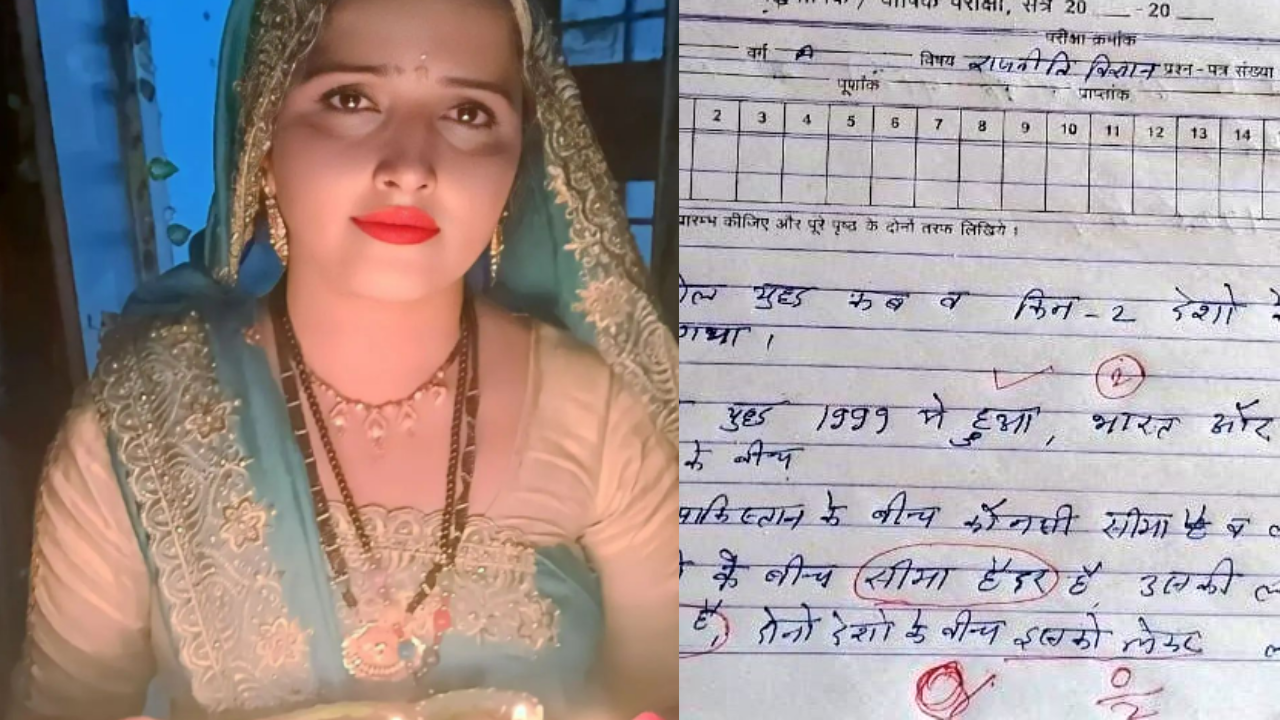 वार्षिक परीक्षा, सत्र 20 ___ - 20 ___
परीक्षा क्रमांक
वर्ग A विषय राजनीति विज्ञान प्रश्न-पत्र संख्या
पूर्णांक प्राप्तांक
2 3 4 5 6 7 8 9 10 11 12 13 14
प्रारम्भ कीजिए और पूरे पृष्ठ के दोनों तरफ लिखिये ।
युद्ध कब व किन-2 देशो के
गया ।
2
युद्ध 1999 मे हुआ, भारत और
के बीच
पाकिस्तान के बीच कौनसी सीमा है व
के बीच सीमा हैदर है, उसकी
है, दोनो देशो के बीच इसको लेकर
0
2